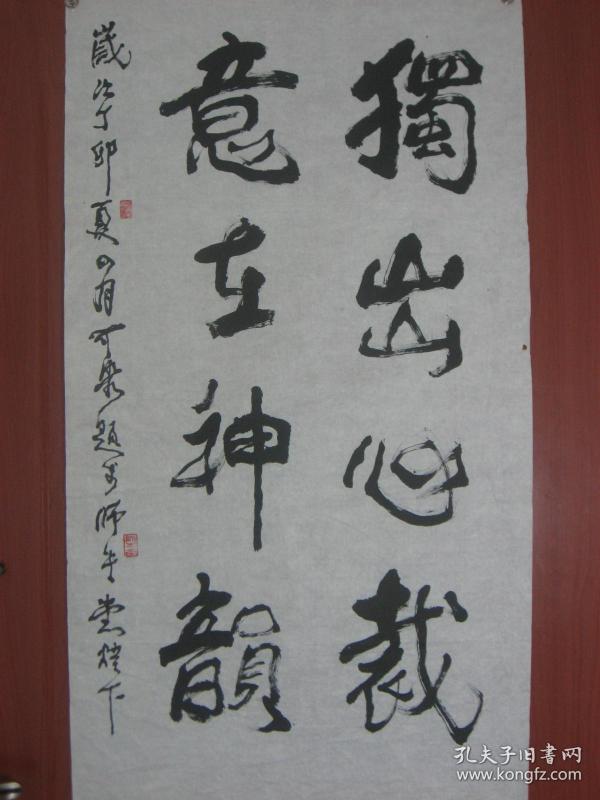 獨出心裁
意在神韻
歲次丁卯夏四月可農題於師牛堂燈下
孔夫子旧書网
www.kongfz.com